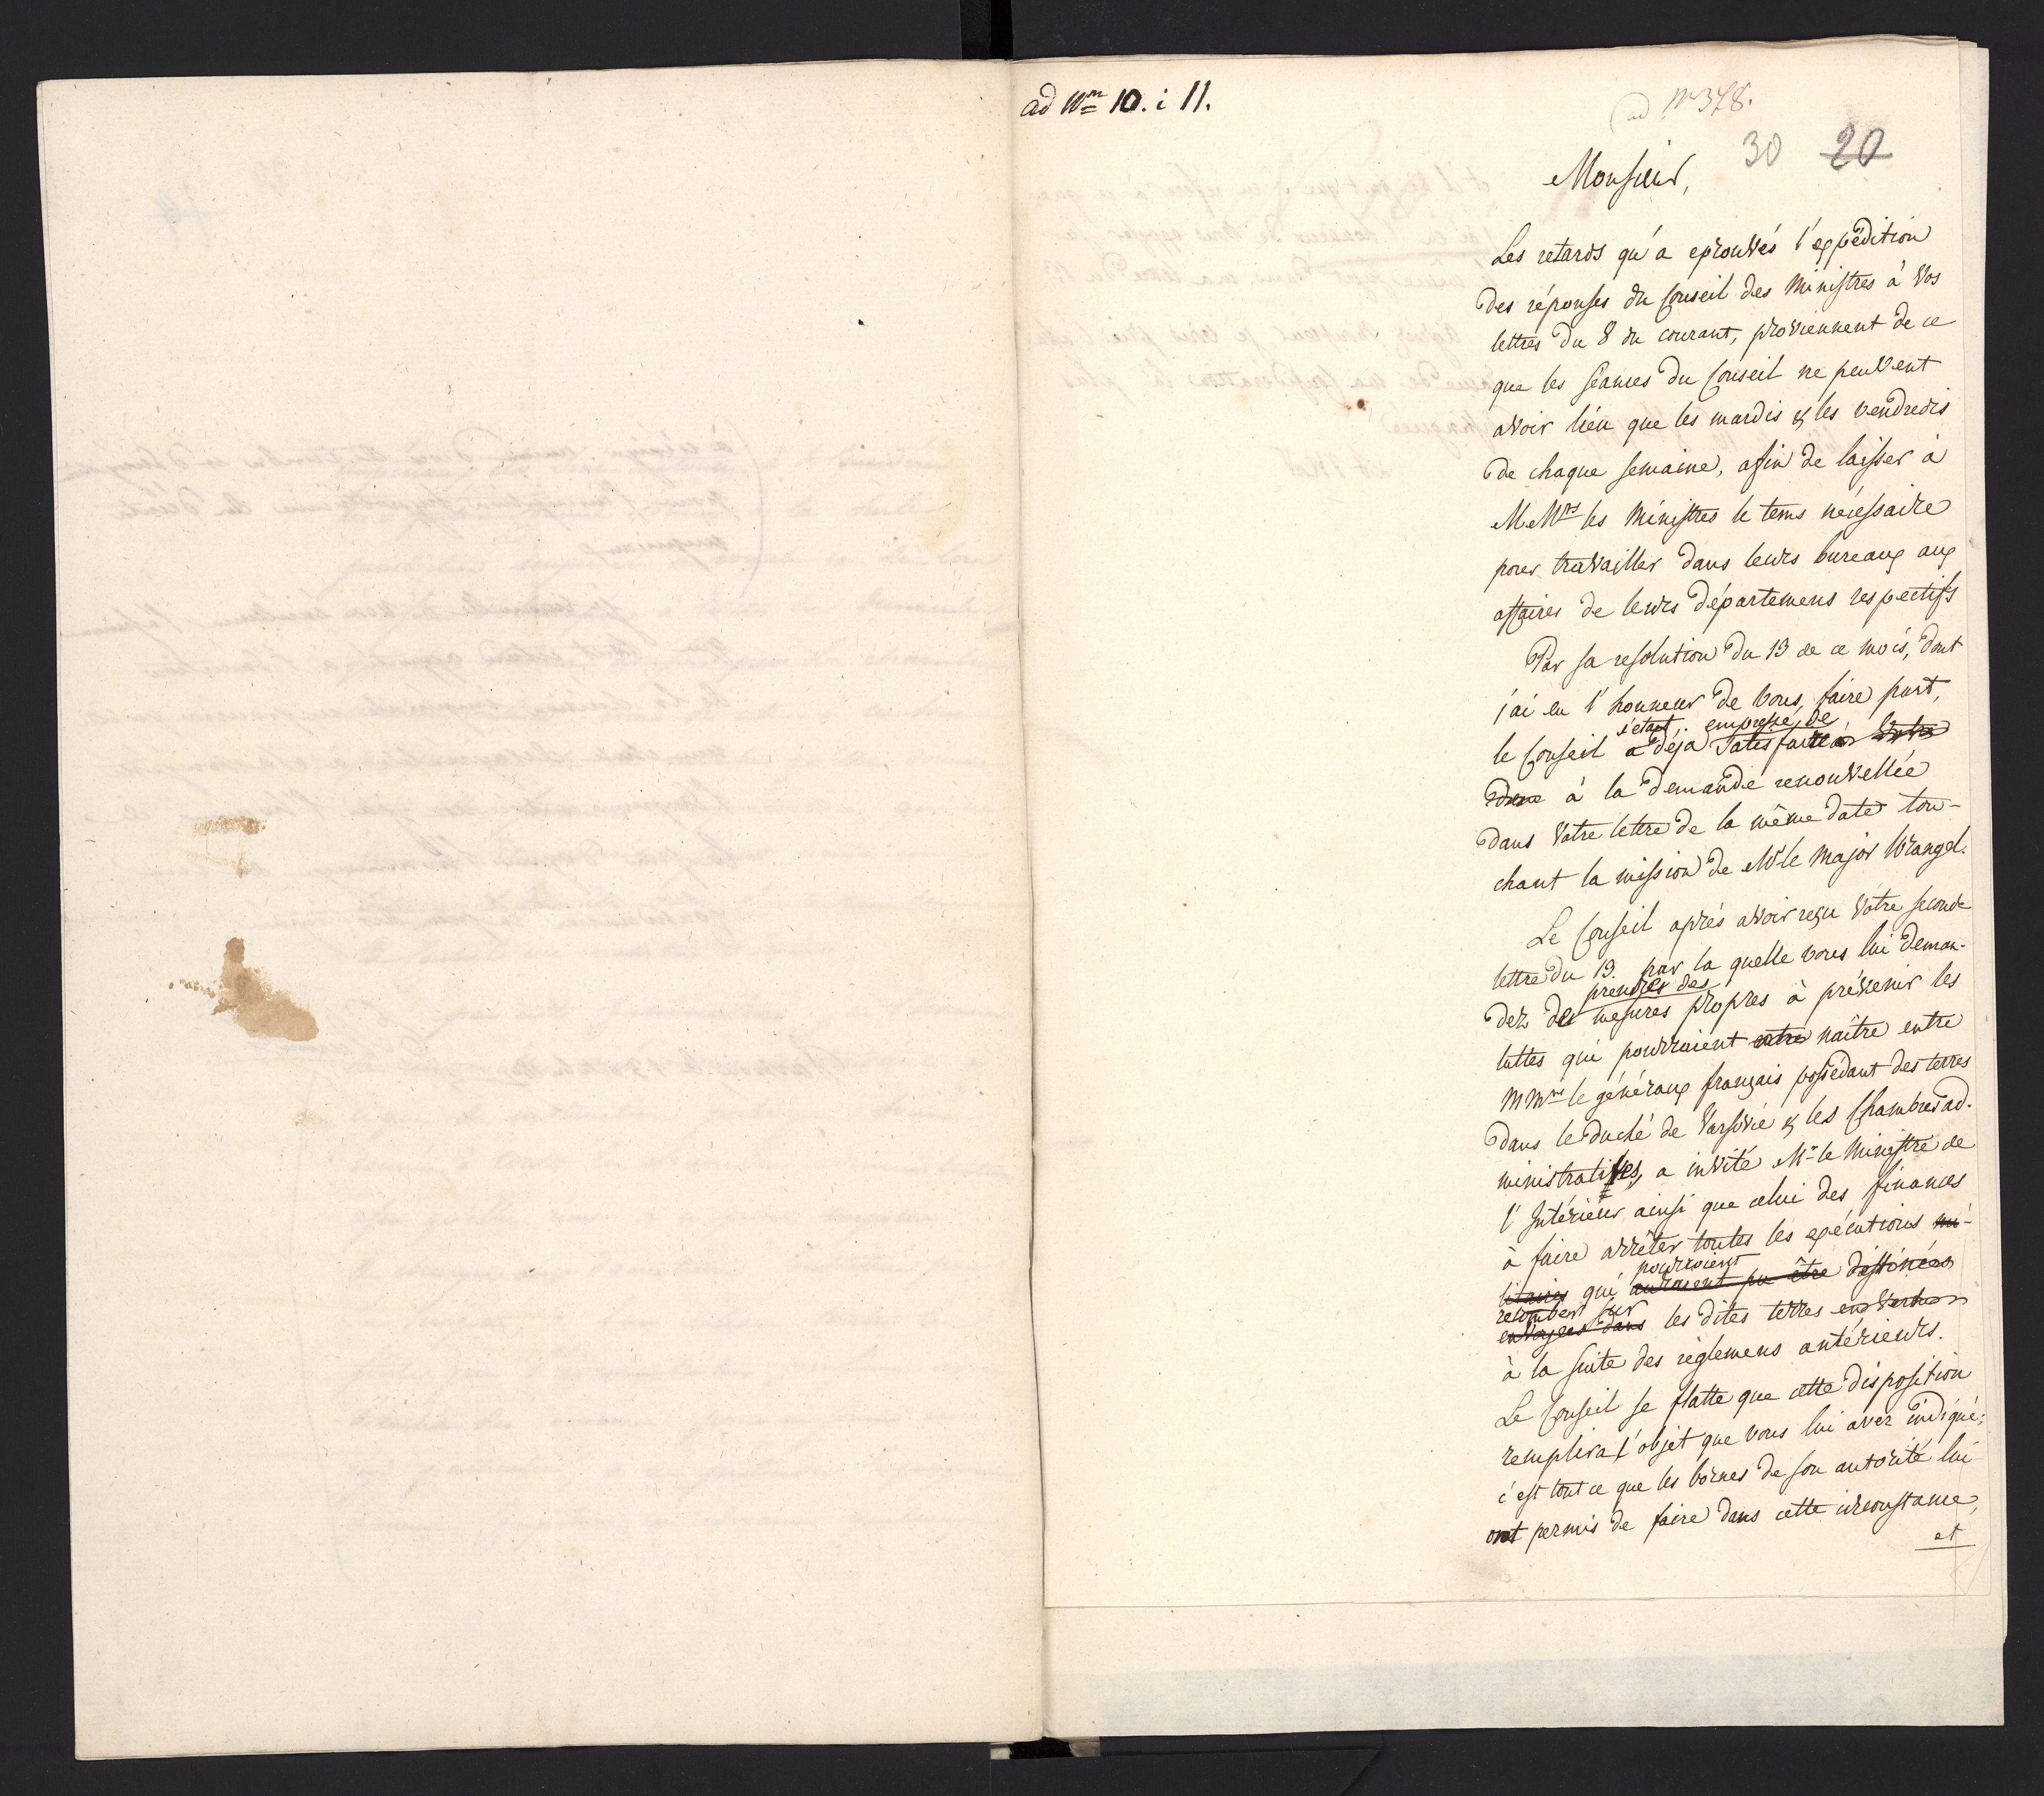 ad Nm 10. i 11.
ad No 378.
30 20
Monsieur,
Les retards qu'a eprouvés l'expédition
des réponses du Conseil des Ministres à Vos
lettres du 8 du courant, proviennent de ce
que les séances du Conseil ne peuvent
avoir lieu que les mardis & les vendredis
de chaque semaine, afin de laisser à
M.Mrs les Ministres le tems nécessaire
pour travailler dans leurs bureaux aux
affaires de leurs départemens respectifs
Par sa resolution du 13 de ce mois, dont
j'ai eu l'honneur de vous faire part,
s'étant empressé de
le Conseil a déja satisfaire à Votre
à la demande renouvellée
dans Votre lettre de la même date tou-
chant la mission de Mr le Major Wrangel.
Le Conseil après avoir reçu Votre seconde
lettre du 13. par la quelle vous lui deman-
prendre des
dez de mesures propres à prévenir les
luttes qui pourraient entre naître entre
MMrs le généraux français possédant des terres
dans le Duché de Varsovie & les Chambres ad-
ministratives, a invité Mr le Ministre de
l'Intérieur ainsi que celui des finances
à faire arrêter toutes les exécutions mi-
pourroient
litaires qui auroient pu être destinées
retomber sur
envoyées dans les dites terres en vertu
à la suite des règlemens antérieurs.
Le Conseil se flatte que cette disposition
remplira l'objet que vous lui avez indiqué;
c'est tout ce que les bornes de son autorité lui
ont permis de faire dans cette circonstance,
et